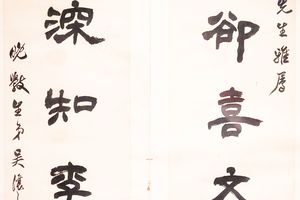 先生雅屬
卻喜文
深知李
晚斅生弟吳讓